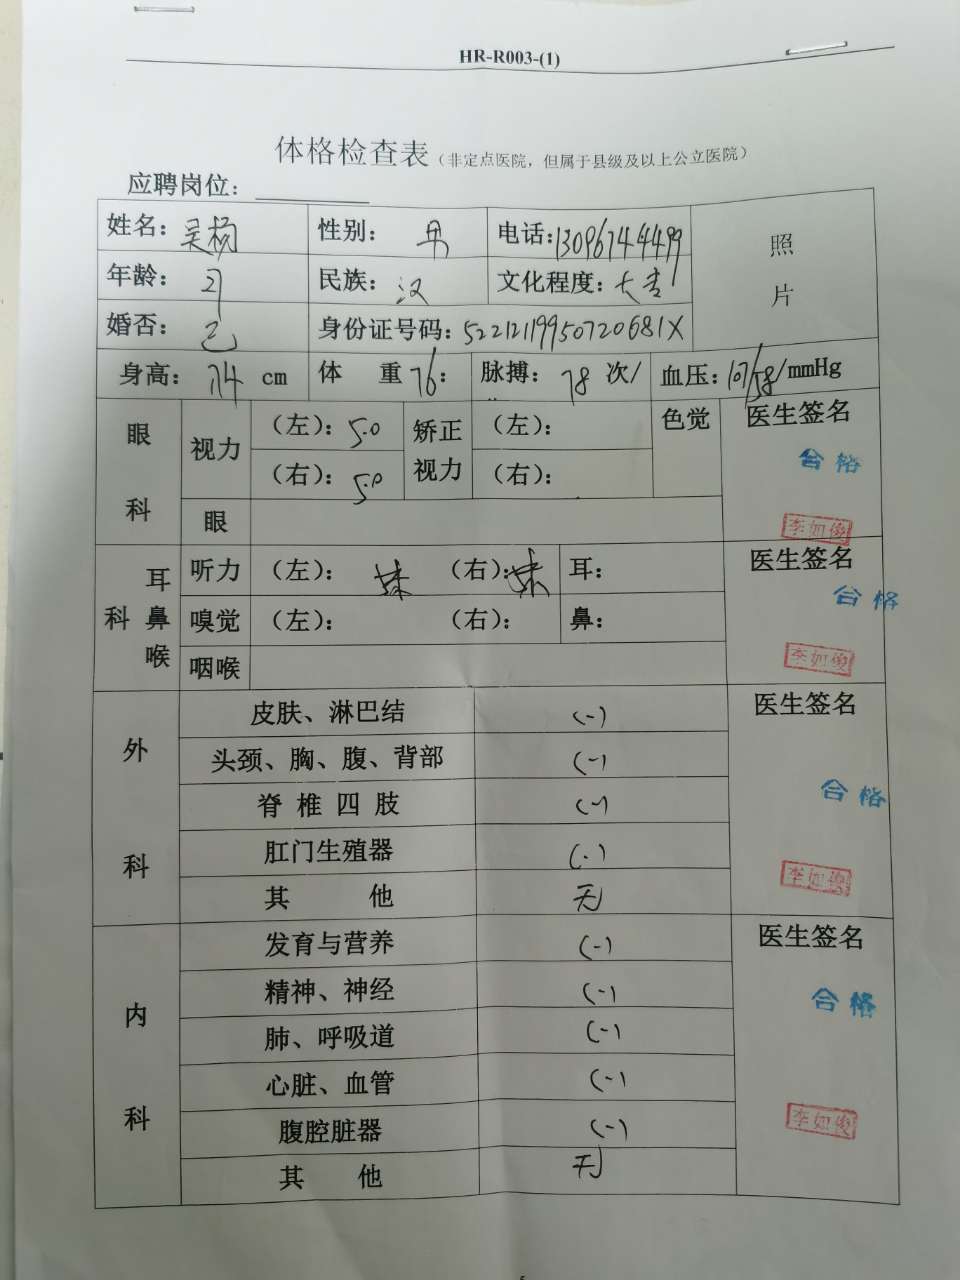 HR-R003-(1)
体格检查表（非定点医院，但属于县级及以上公立医院）
应聘岗位：
姓名：吴杨 性别：男 电话：13096744499 照片
年龄： 民族：汉 文化程度：大专
婚否：已 身份证号码：52212119950720681X
身高：174 cm 体 重 76： 脉搏：78 次/ 血压：107/58/mmHg
眼科 视力 （左）：5.0 矫正视力 （左）： 色觉 医生签名
（右）：5.0 （右）： 合格
眼 李如俊
耳鼻喉科 听力 （左）： （右）： 耳： 医生签名
嗅觉 （左）： （右）： 鼻： 合格
咽喉 李如俊
外科 皮肤、淋巴结 (-) 医生签名
头颈、胸、腹、背部 (-)
脊椎四肢 (-) 合格
肛门生殖器 (-) 李如俊
其 他 无
内科 发育与营养 (-) 医生签名
精神、神经 (-) 合格
肺、呼吸道 (-)
心脏、血管 (-)
腹腔脏器 (-) 李如俊
其 他 无